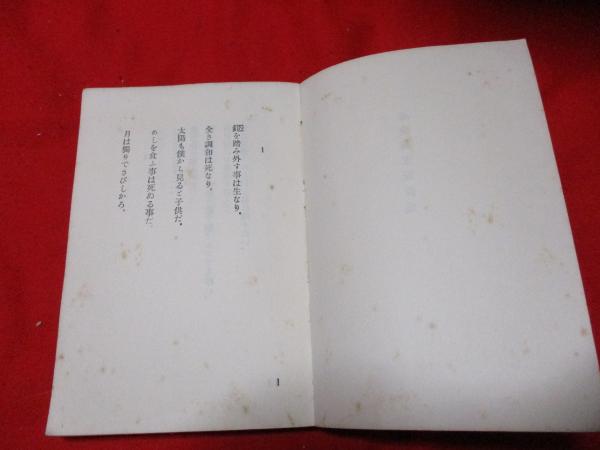 1
鐙を踏み外す事は生なり。
全き調和は死なり。
太陽も僕から見ると子供だ。
めしを食ふ事は死ぬる事だ。
月は獨りでさびしかろ。
1